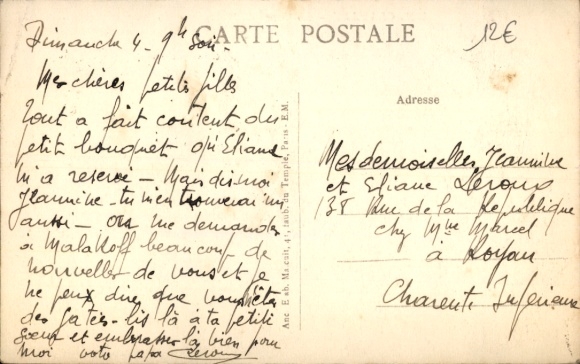 CARTE POSTALE
12€
Dimanche 4 - 9h Soir -
Mes chères petites filles
Tout a fait content du
petit bouquet qu'Eliane
m'a reservé - Mais dis moi
Jeannine - tu m'en trouverai un
aussi - On me demande
à Malakoff beaucoup de
nouvelles de vous et je
ne peux dire que vous êtes
des gatés - lis là à ta petite
Soeur et embrasse la bien pour
moi votre papa Leroux
Anc. Etab. Malcuit, 41, faub. du Temple, Paris - E.M.
Adresse
Mesdemoiselles Jeannine
et Eliane Leroux
138 Rue de la République
chez Mme Marcel
à Royan
Charente Inférieure